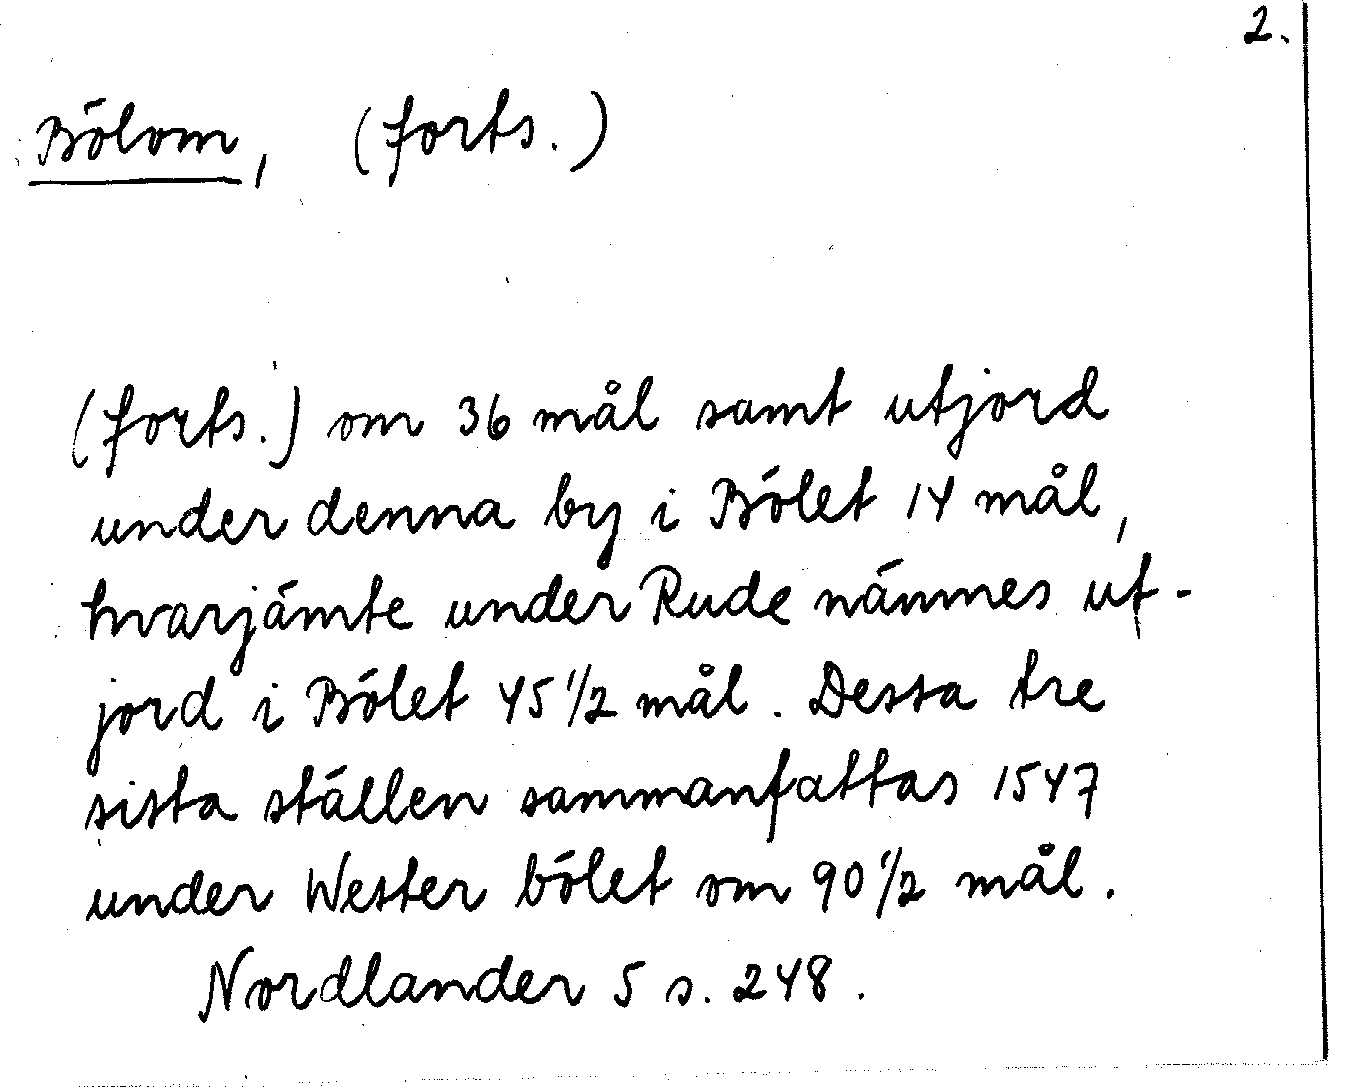 2.
Bölom, (forts.)
(forts.) om 36 mål samt utjord
under denna by i Bölet 14 mål,
hvarjämte under Rude nämnes ut-
jord i Bölet 45 1/2 mål. Dessa tre
sista ställen sammanfattas 1547
under Wester bölet om 90 1/2 mål.
Nordlander 5 s. 248.